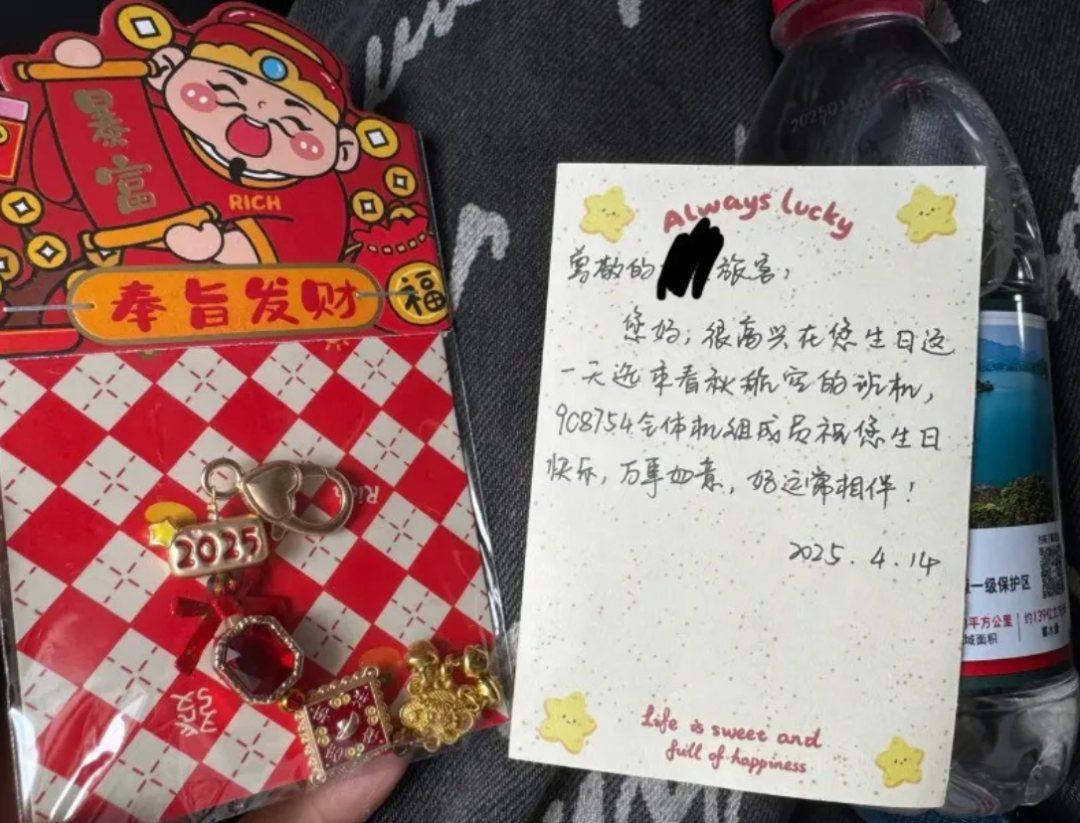 暴富
RICH
奉旨发财
福
2025
Rich
发
Always lucky
尊敬的 旅客:
您好,很高兴在您生日这
一天选乘春秋航空的班机,
9C8754全体机组成员祝您生日
快乐,万事如意,好运常相伴!
2025.4.14
Life is sweet and
full of happiness
一级保护区
平方公里
约139亿立方
域面积
蓄水量